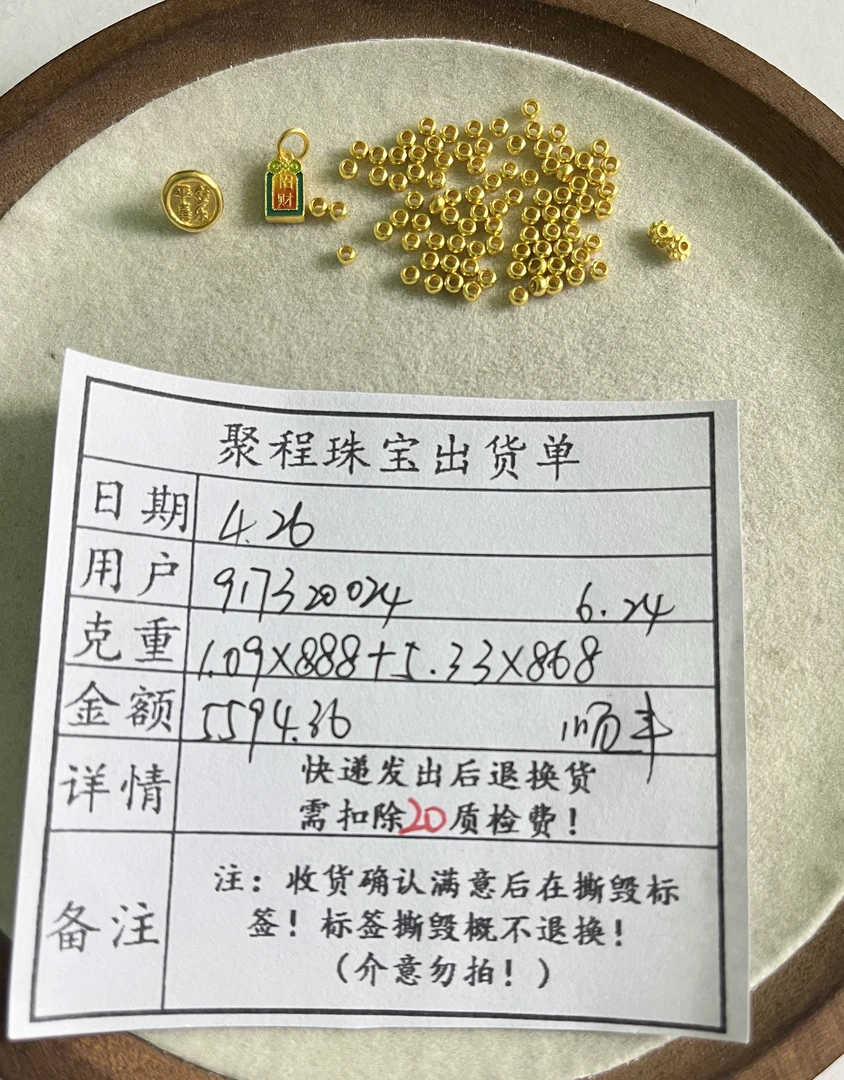 招财
聚程珠宝出货单
日期 4.26
用户 917320024 6.24
克重 1.09×888+5.33×868
金额 5594.36 顺丰
详情 快递发出后退换货
需扣除20质检费!
备注 注：收货确认满意后在撕毁标
签!标签撕毁概不退换!
(介意勿拍!)